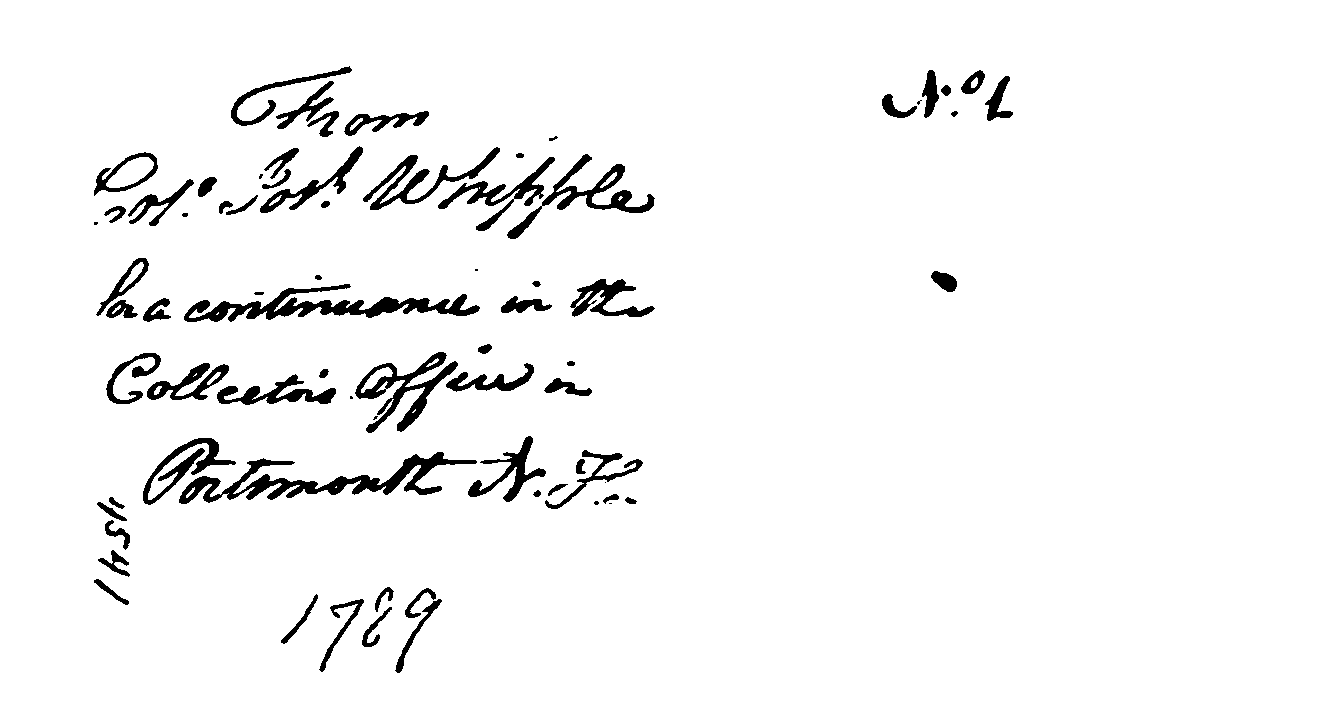 From
Colo. Josh. Whipple
for a continuance in the
Collector's Office in
Portsmouth N. H.
1789
No. 1